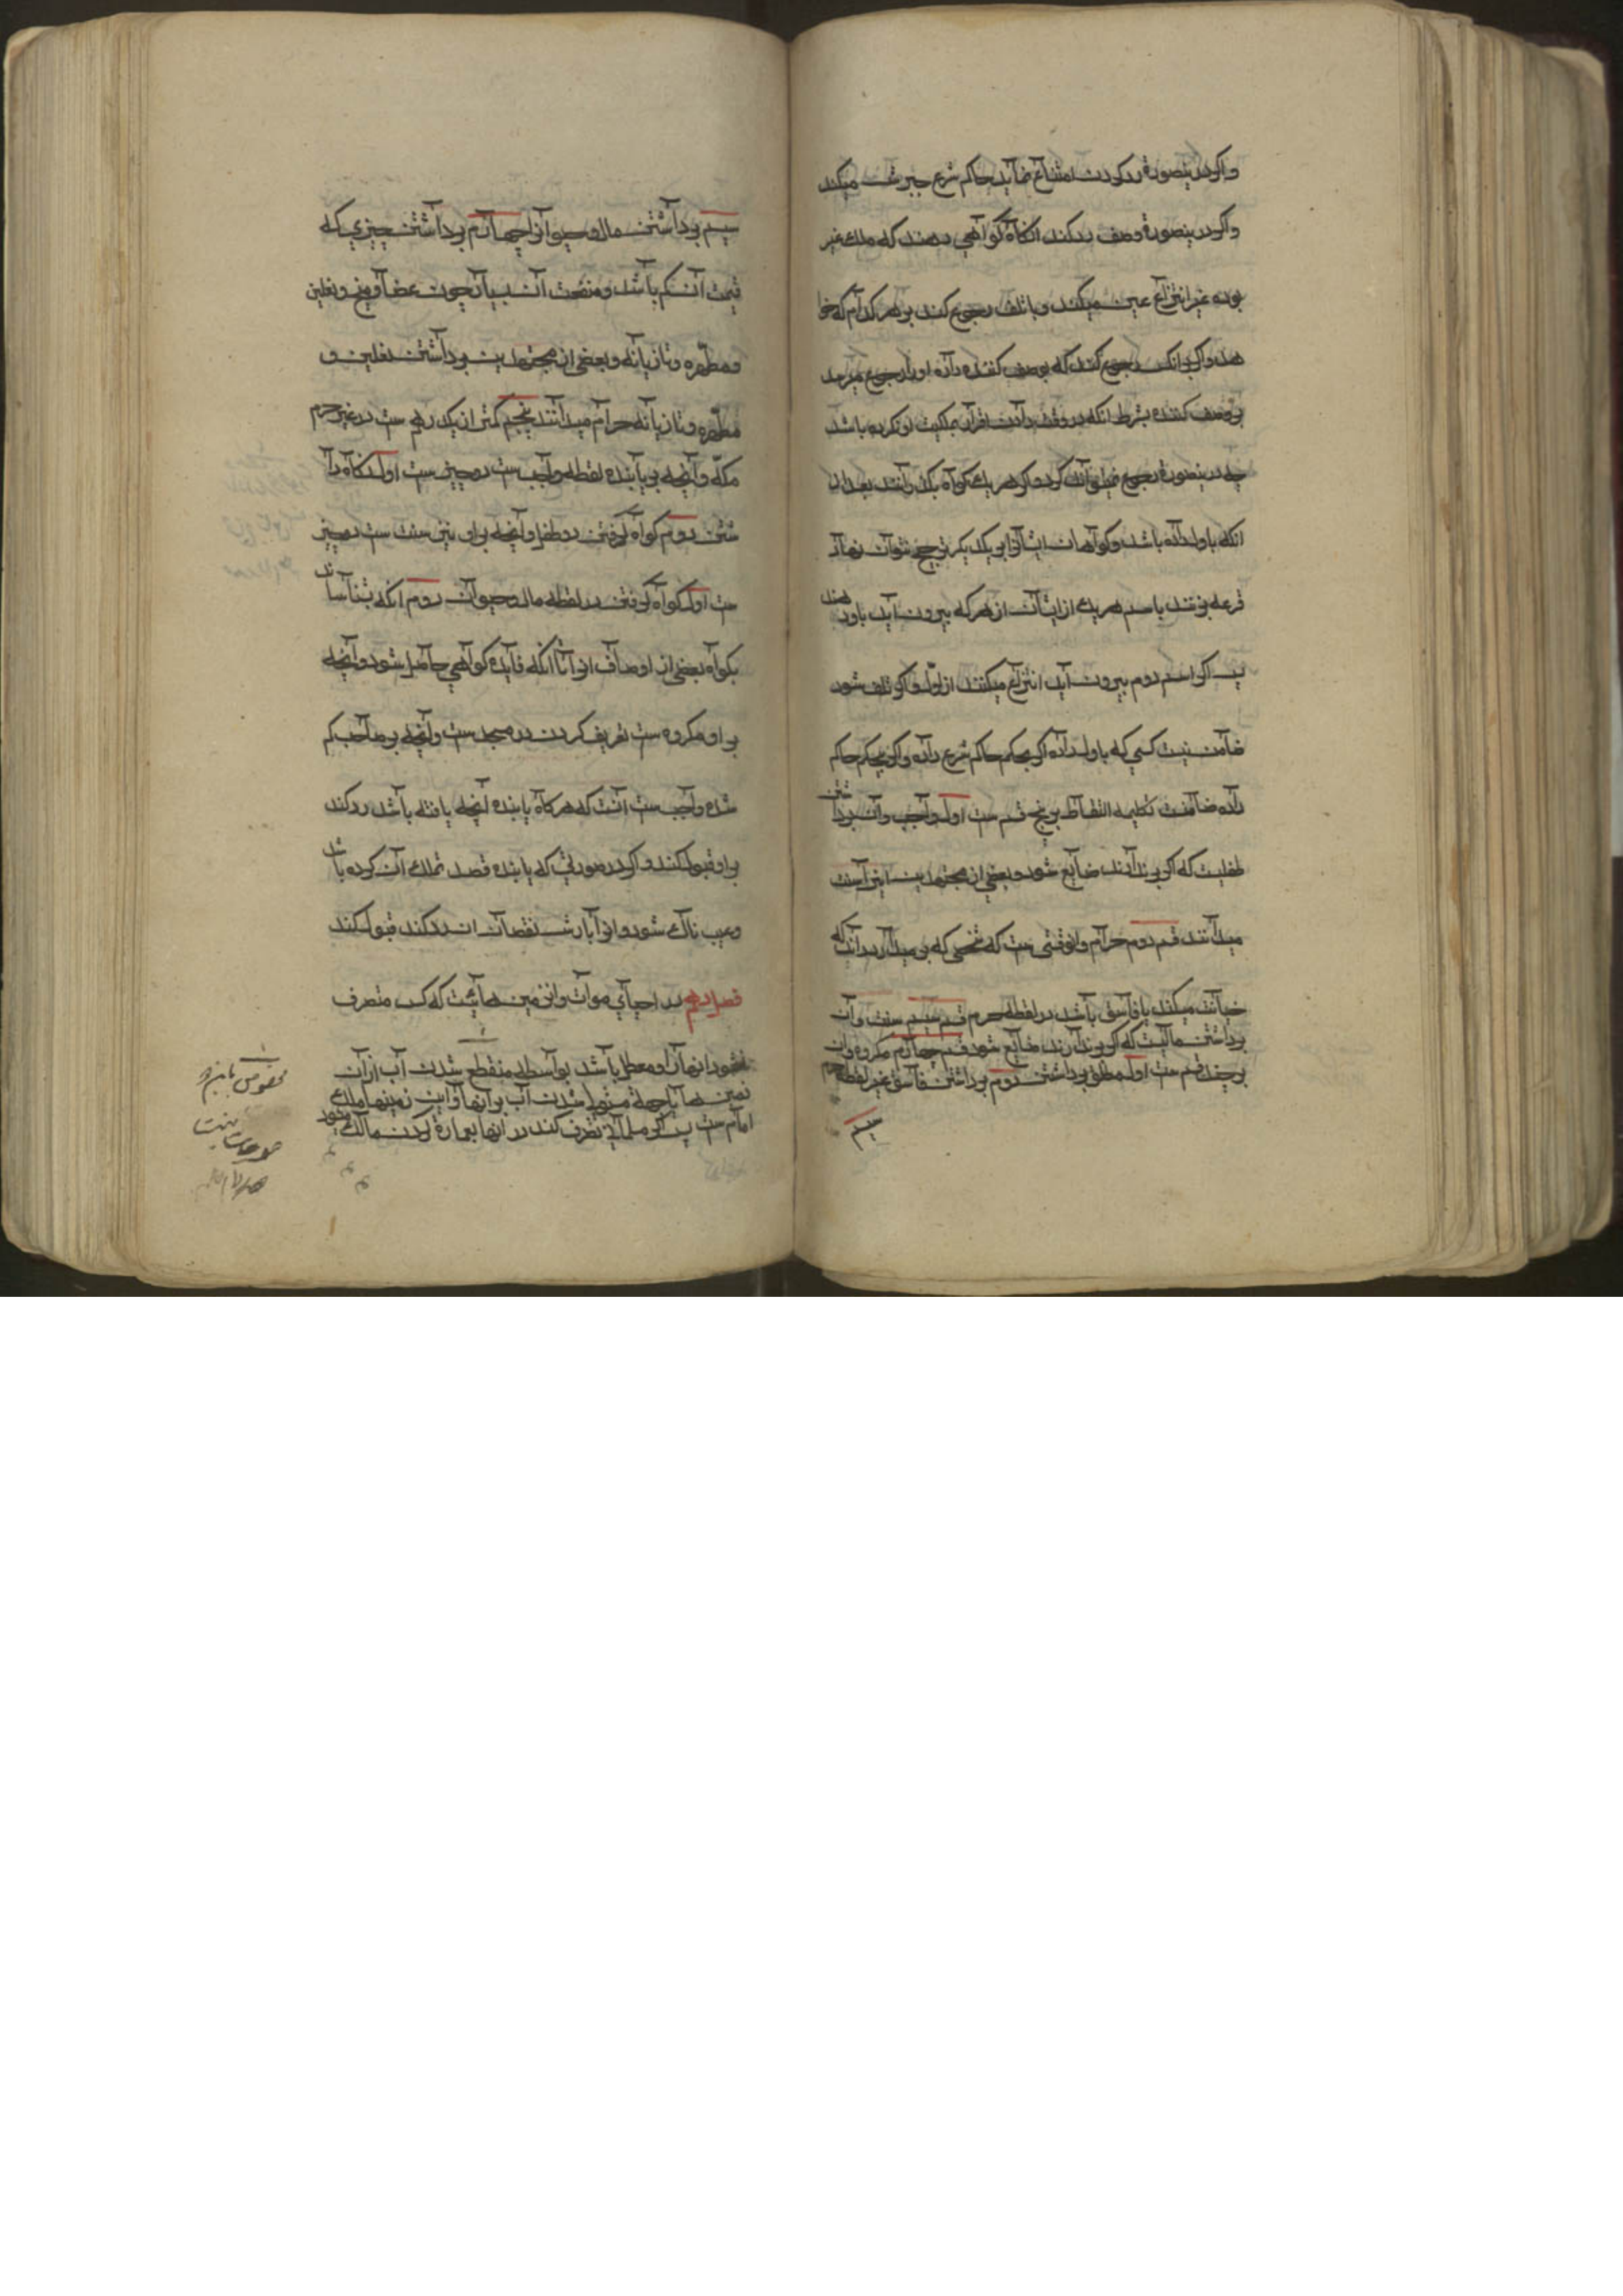 و اگر درینصورة رد کردن امتناع نماید حاکم شرع جبرش میکند
و اگر درینصورة وصف رد کند انکاه کواهی دهند که ملك غیر
بوده غیر انتزاع عین میکند و با تلف رجوع کند بر هر کدام که خوا
هد و اگر بر انکس رجوع کند که بوصف کننده داده او را رجوع میرسد
بوصف کننده بشرط انکه در وقت دادن اقرار بملکیت او نکرده باشد
چه درینصورة رجوع نمیتواند کرد و اکر هر یك کواه بکذرانند بعد از
انکه باول داده باشد و کواهان ایشانرا بر یکدیکر ترجیح نتوان نهاد
قرعه بزنند باسم هر یك از ایشان از هر که بیرون آید باو دهند
پس اکر اسم دوم بیرون آید انتزاع میکنند از اول و اکر تلف شود
ضامن نیست کسی که باول داده اکر بحکم حاکم شرع داده و اکر بی حکم حاکم
داده ضامنست تکلمه التقاط بر پنج قسم ست اول واجب و آن برداشتن
طفلیست که اکر برندارند ضایع شود و بعضی از مجتهدین اینرا سنت
میدانند قسم دوم حرام و انوقتی ست که شخصی که بر میدارد داند که
خیانت میکند یا فاسق باشد در لقطه حرم قسم سیم سنت و آن
برداشتن مالیست که اکر برندارند ضایع شود قسم چهارم مکروه و ان
بر چند قسم ست اول مطلق برداشتن دوم برداشتن فاسق غیر لقطه حرم
سیم
سیم برداشتن مال و حیوانرا چهارم برداشتن چیزی که
قیمت آن کم باشد و منفعت آن بسیار چون عصا و میخ و نعلین
و مطهره و تازیانه و بعضی از مجتهدین برداشتن نعلین و
مطهره و تازیانه حرام میدانند پنجم کمتر از یکدرهم ست در غیر حرم
مکه و آنچه بر یابنده لقطه واجب ست دو چیز ست اول نکاه دا
شتن دوم کواه کرفتن در طفل و آنچه برای نیز سنت ست دو چیز
ست اول کواه کرفتن در لقطه مال و حیوان دوم انکه بشناساند
بکواه بعضی از اوصاف انرا تا انکه فایده کواهی حاصل شود و آنچه
بر او مکروه ست تعریف کردن در مسجد ست و آنچه بر صاحب کم
شده واجب ست آنست که هر کاه یابنده آنچه یافته باشد رد کند
بر او قبول کند و اکر در صورتی که یابنده قصد تملك آن کرده باشد
و عیب ناك شود و انرا با ارش نقصان ان رد کند قبول کند
فصل دهم در احیای موات و ان زمین هائیست که کس متصرف
نشود انها را و معطل باشد بواسطه منقطع شدن آب از آن
زمین ها یا جهة مستولی شدن آب بر انها و این زمینها ملك
امام ست پس اکر مسلمانی تصرف کند در انها بعمارة کردن مالك میشود